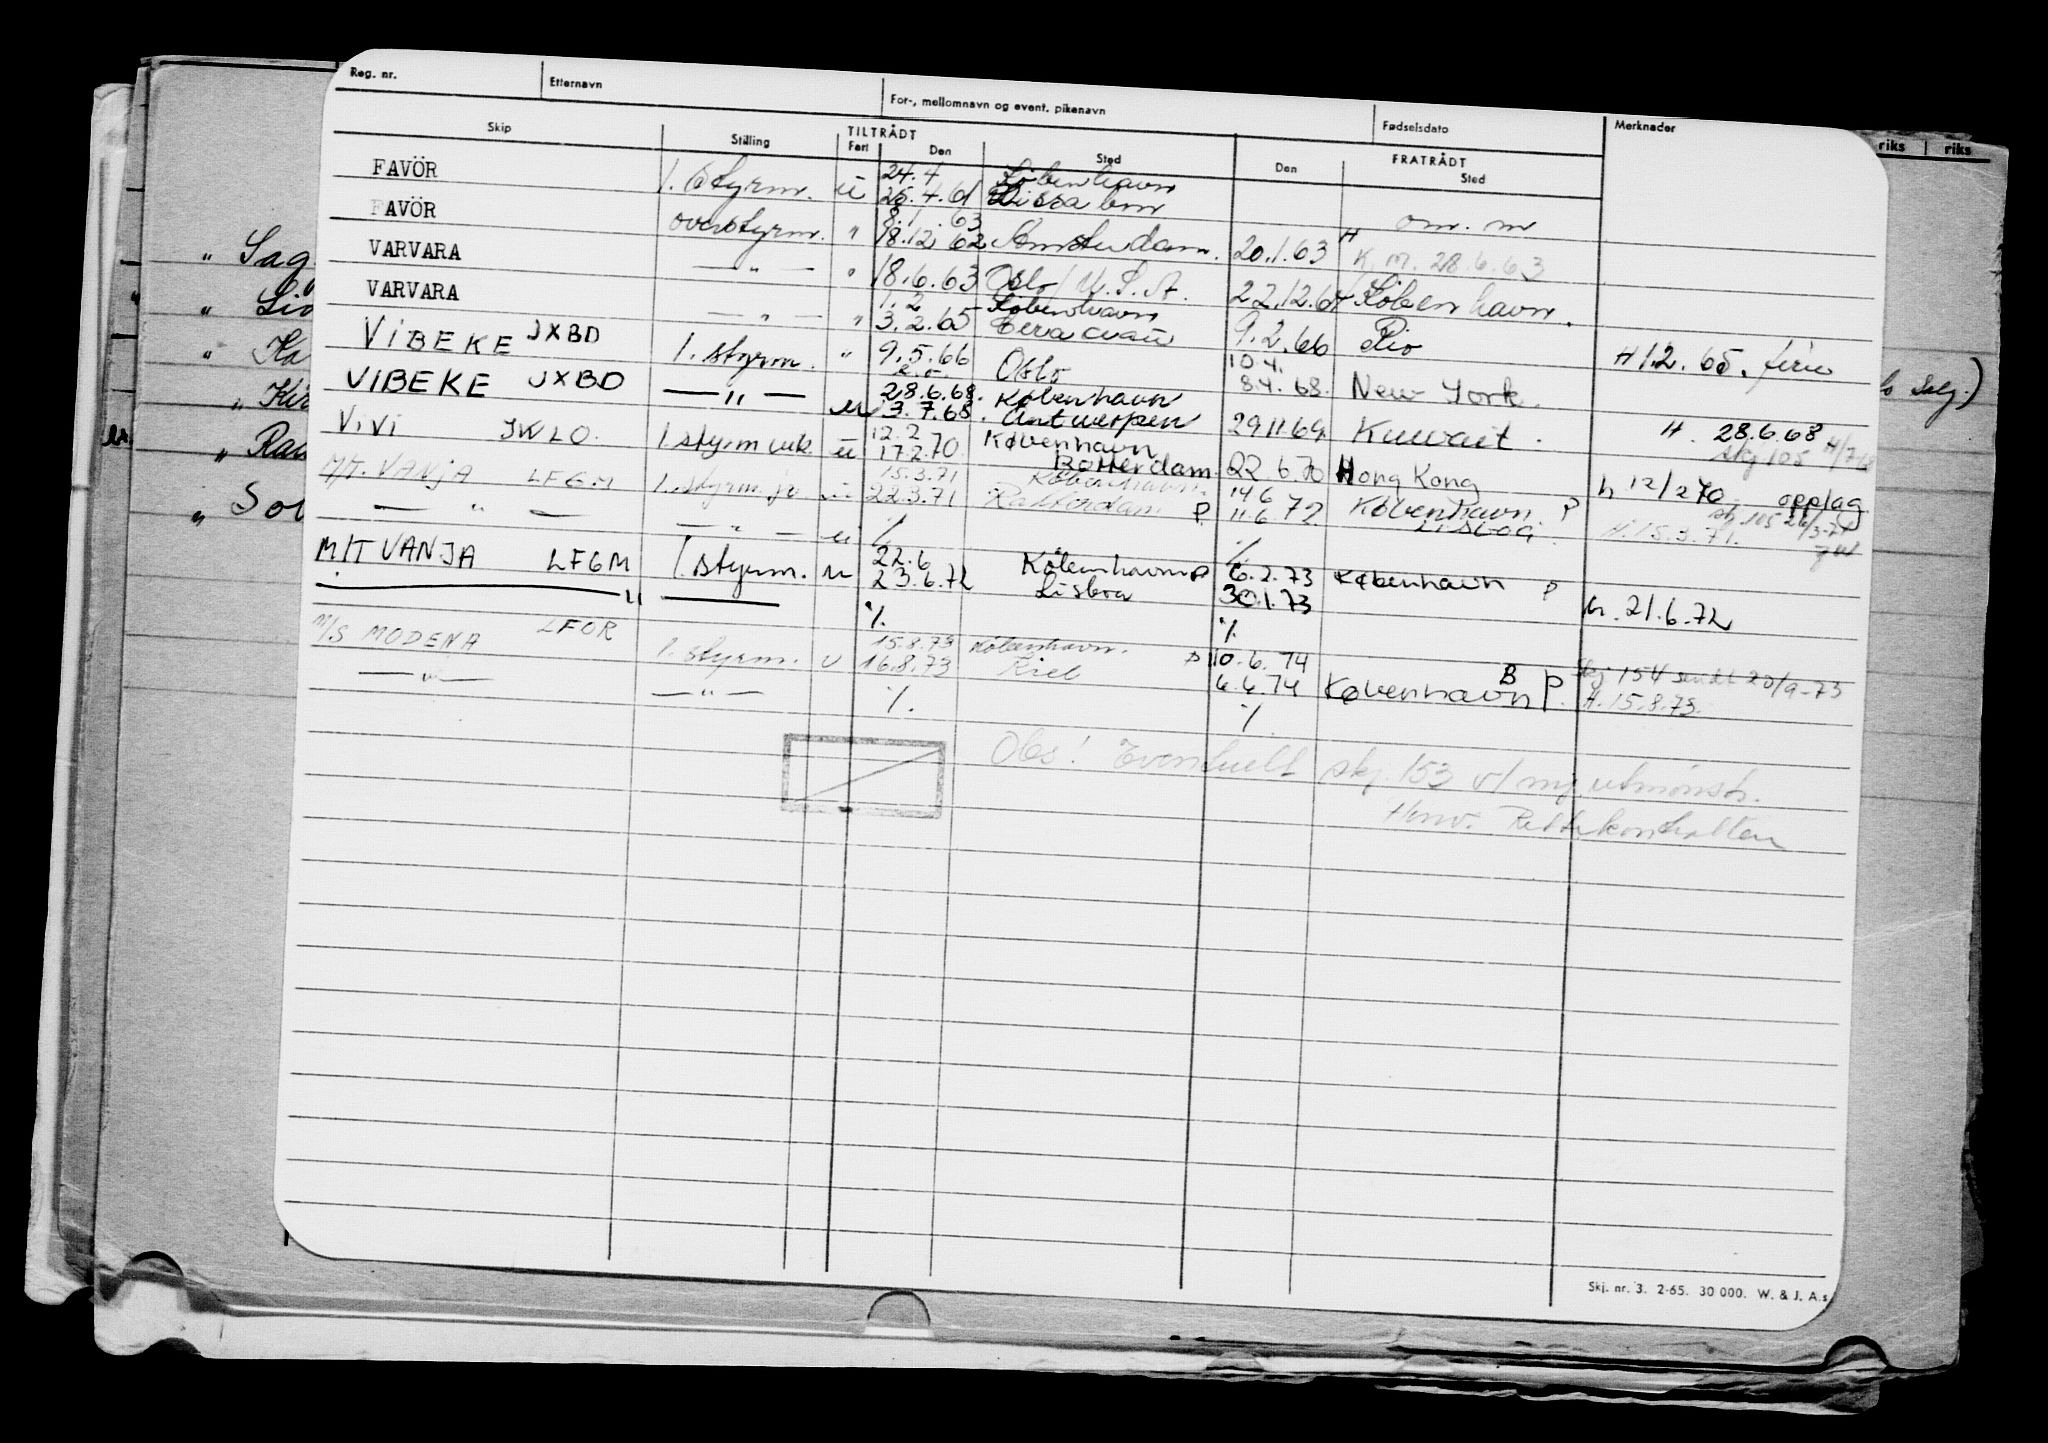 Reg. nr. Etternavn For-, mellomnavn og event. pikenavn Fødselsdato Merknader
riks riks
Skip Stilling TILTRÅDT FRATRÅDT
Fart Den Sted Den Sted
FAVÖR 1. Styrm. u 24.4 København
25.4.61 Lissabon om. m
FAVÖR overstyrm. " 8.1.63
18.12 62 Amsterdam. 20.1.63 H K.m. 28.6.63
VARVARA — " — " 18.6.63 Oslo / U.S.A. 22.12.64 København.
VARVARA — " — " 1.2 København
3.2.65 9.2.66 Rio H 1.2.65. ferie
ViBEKE JXBD 1. styrm. " 9.5.66 Oslo 10.4.
8.4.68. New York.
VIBEKE JXBD — " — u 28.6.68. København
3.7.68. Antwerpen 29.11.69. Kuwait. H. 28.6.68
skj 105
ViVi JWLO. 1 styrm vik. u 12.2 København
17.2.70 Rotterdam. 22.6.70 Hong Kong h 12/2 70 opplag
M/T. VANJA LFGM 1. styrm. jr u 15.3.71 København
22.3.71 Rotterdam P. 14.6 København P
11.6.72 Lisboa. H. 15.3.71. skj 105 26/3-71
— " — — " — u % %
M/T VANJA LFGM 1. styrm. u 22.6 København P 6.2.73 København P
23.6.72 Lisboa 30.1.73 h. 21.6.72
— " — — % %
M/S MODENA LFOR 1. styrm. u 15.8.73 København. P 10.6.74
16.8.73 Kiel 6.6.74 København B P. Skj 154 sendt 20/9-73
H. 15.8.73.
— " — — " — %. %.
Obs! Eventuell skj. 153 v/ny utmønstr.
Henv. Rettekontrollen
" Sag
" Lio
" Ka
" Kir
u. " Ran
" Sol
Salg.)
Skj. nr. 3. 2-65. 30 000. W. & J. A.s